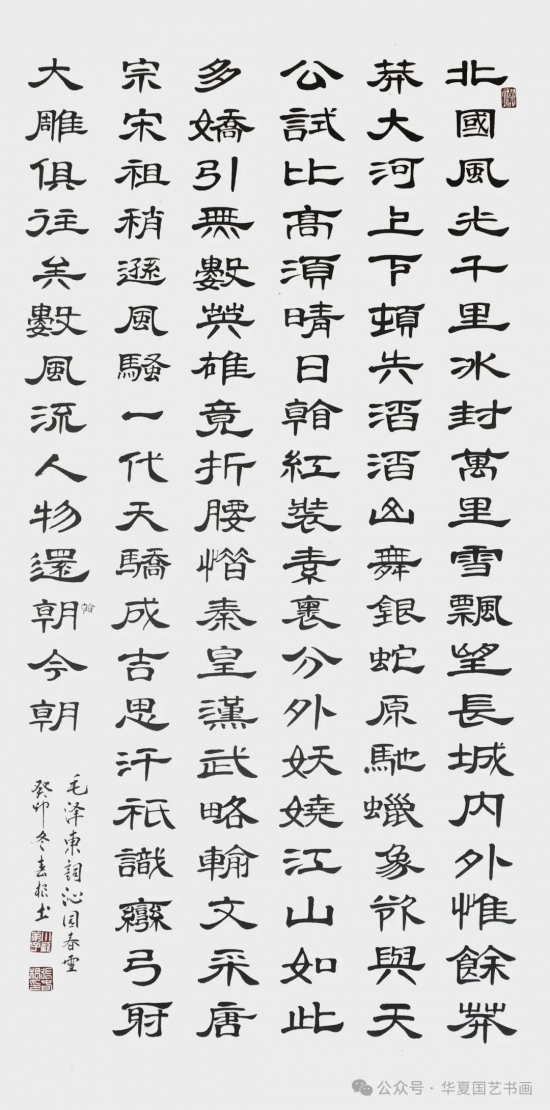 北國風光千里冰封萬里雪飄望長城内外惟餘莽
莽大河上下頓失滔滔山舞銀蛇原馳蠟象欲與天
公試比高須晴日看紅裝素裹分外妖嬈江山如此
多嬌引無數英雄竟折腰惜秦皇漢武略輸文采唐
宗宋祖稍遜風騷一代天驕成吉思汗祇識彎弓射
大雕俱往矣數風流人物還朝今朝
看
毛泽東詞沁园春雪
癸卯冬春根书
公众号·华夏国艺书画